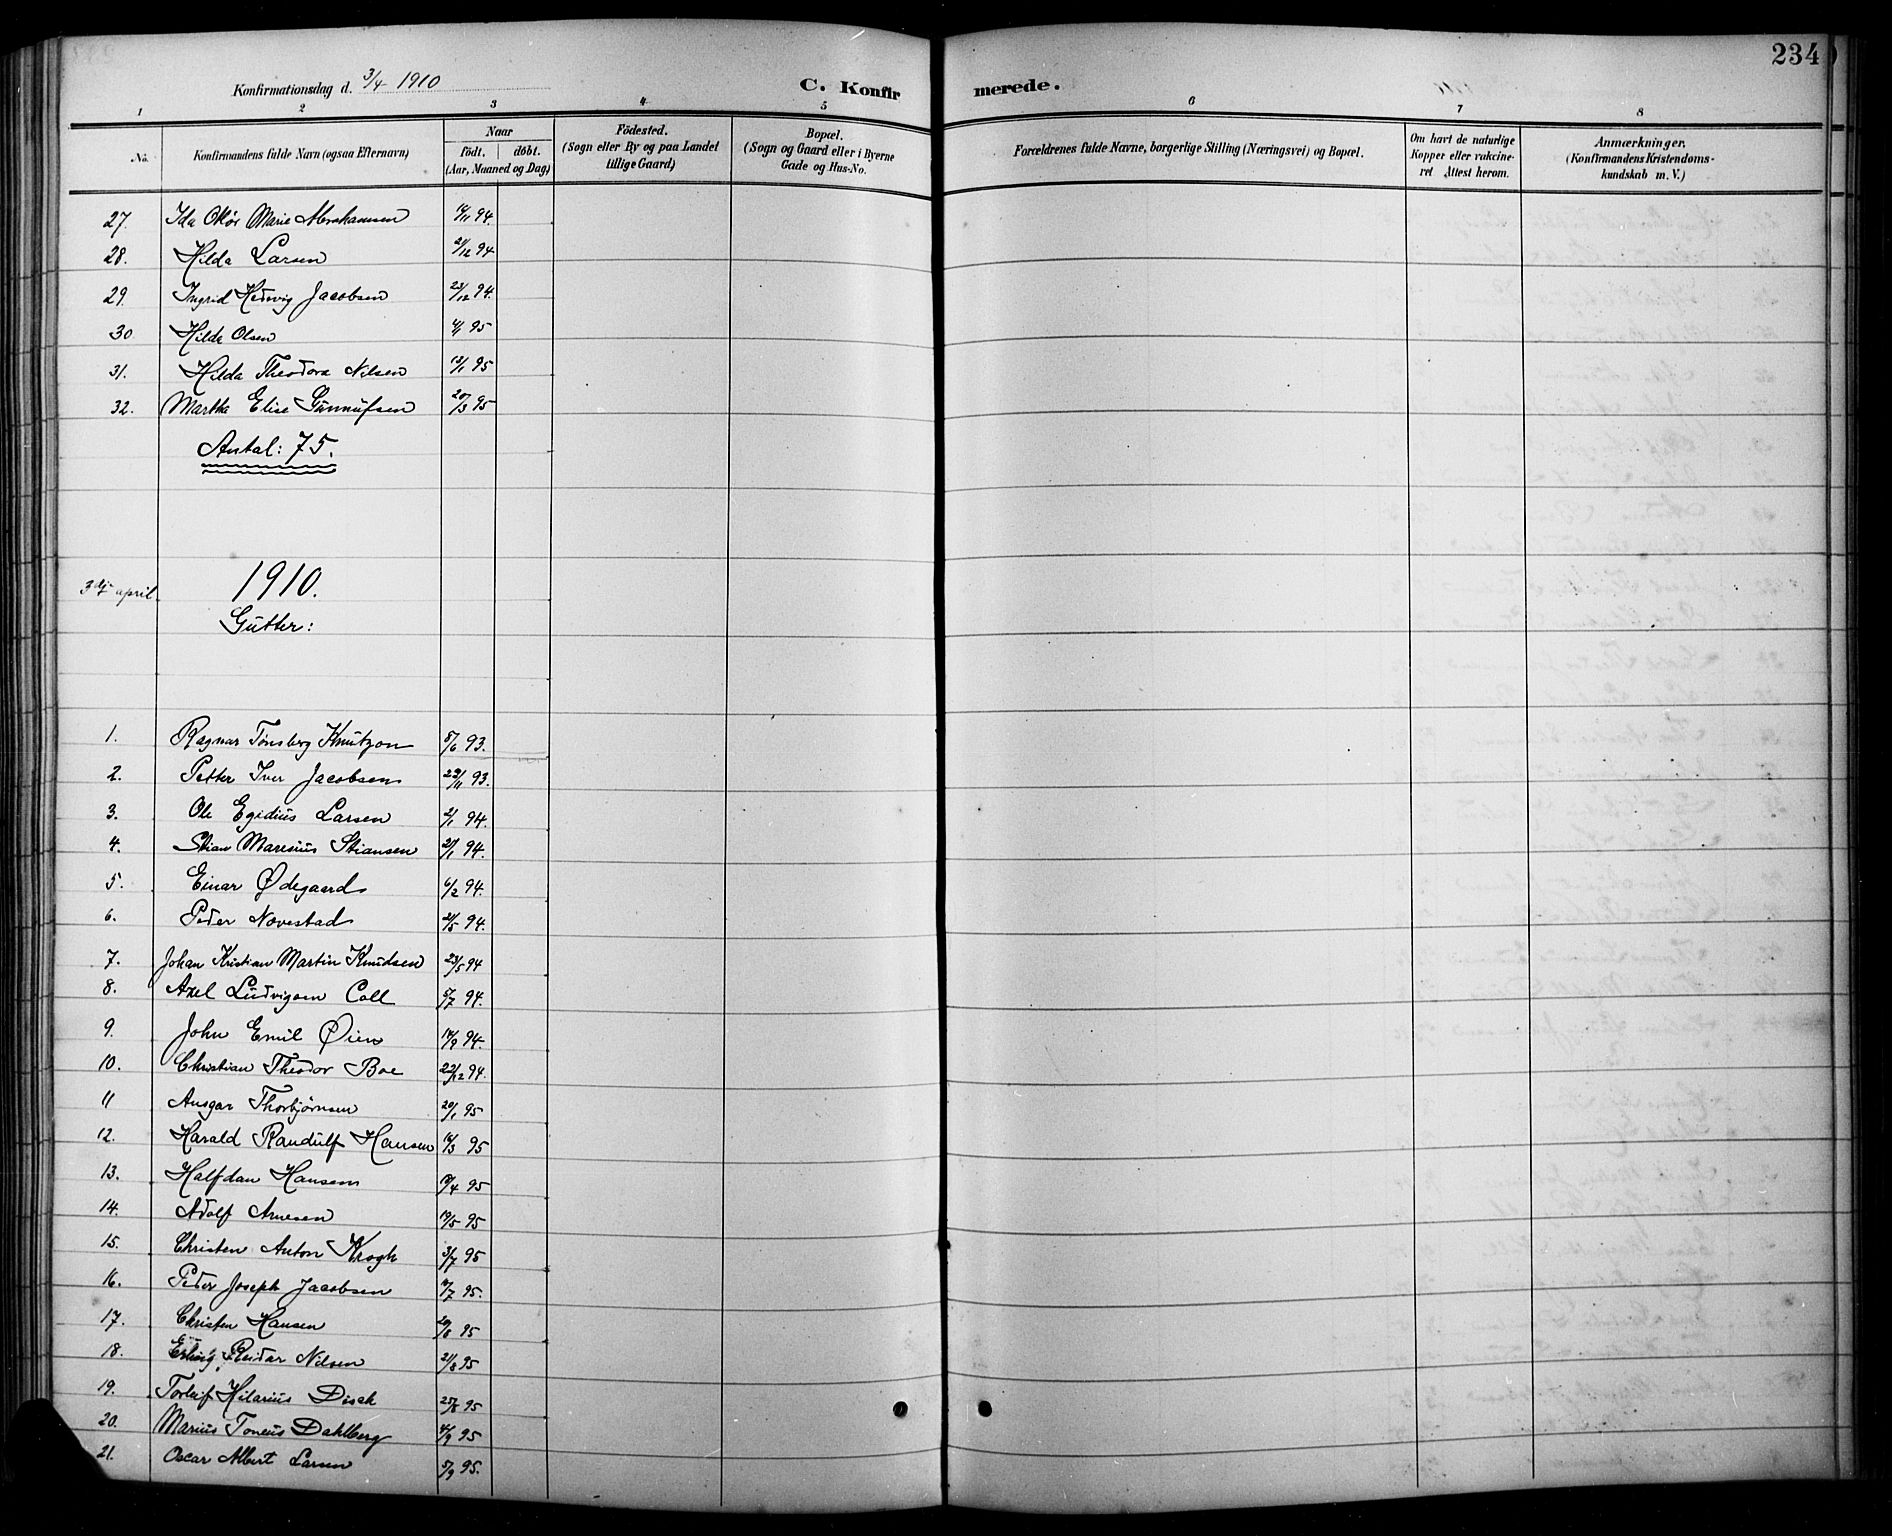 234
Konfirmationsdag d. 3/4 1910
C. Konfirmerede.
1 2 3 4 5 6 7 8
No.
Konfirmandens fulde Navn (ogsaa Efternavn)
Naar
födt. döbt.
(Aar, Maaned og Dag)
Födested.
(Sogn eller By og paa Landet
tillige Gaard)
Bopæl.
(Sogn og Gaard eller i Byerne
Gade og Hus-No.
Forældrenes fulde Navne, borgerlige Stilling (Næringsvei) og Bopæl.
Om havt de naturlige
Kopper eller vakcine-
ret Attest herom.
Anmærkninger.
(Konfirmandens Kristendoms-
kundskab m. V.)
27. Ida Marie Abrahamsen 94.
28. Hilda Larsen 21/12 94
29. Ingrid Hedvig Jacobsen 23/12 94.
30 Hilda Olsen 95
31. Hilda Theodora Nilsen 13/1 95
32. Martha Elise Gunnufsen 20/3 95
Antal: 75.
3die april. 1910.
Gutter:
1. Ragnar Tønsberg Knutzon 8/6 93.
2. Petter Iver Jacobsen 22/11 93.
3. Ole Egidius Larsen 2/1 94.
4. Stian Maresius Stiansen 21/1 94.
5. Einar Ødegaard 6/2 94.
6. Peder Novestad 2/5 94.
7. Johan Kristian Martin Knudsen 23/5 94
8. Axel Ludvigsen Coll 5/7 94.
9. John Emil Øien 14/9 94.
10. Christian Theodor Boe 22/12 94.
11 Ansgar Thorbjørnsen 20/1 95
12. Harald Randulf Hansen 14/3 95
13. Halfdan Hansen 95
14. Adolf Arnesen 19/5 95
15. Christen Anton Krogh 3/7 95
16. Peder Joseph Jacobsen 95.
17. Christen Hansen 95
18. Erling Reidar Nilsen 21/8 95
19. Torleif Hilarius Disch 25/8 95
20. Marius Toneus Dahlberg 4/9 95
21. Oscar Albert Larsen 5/9 95.